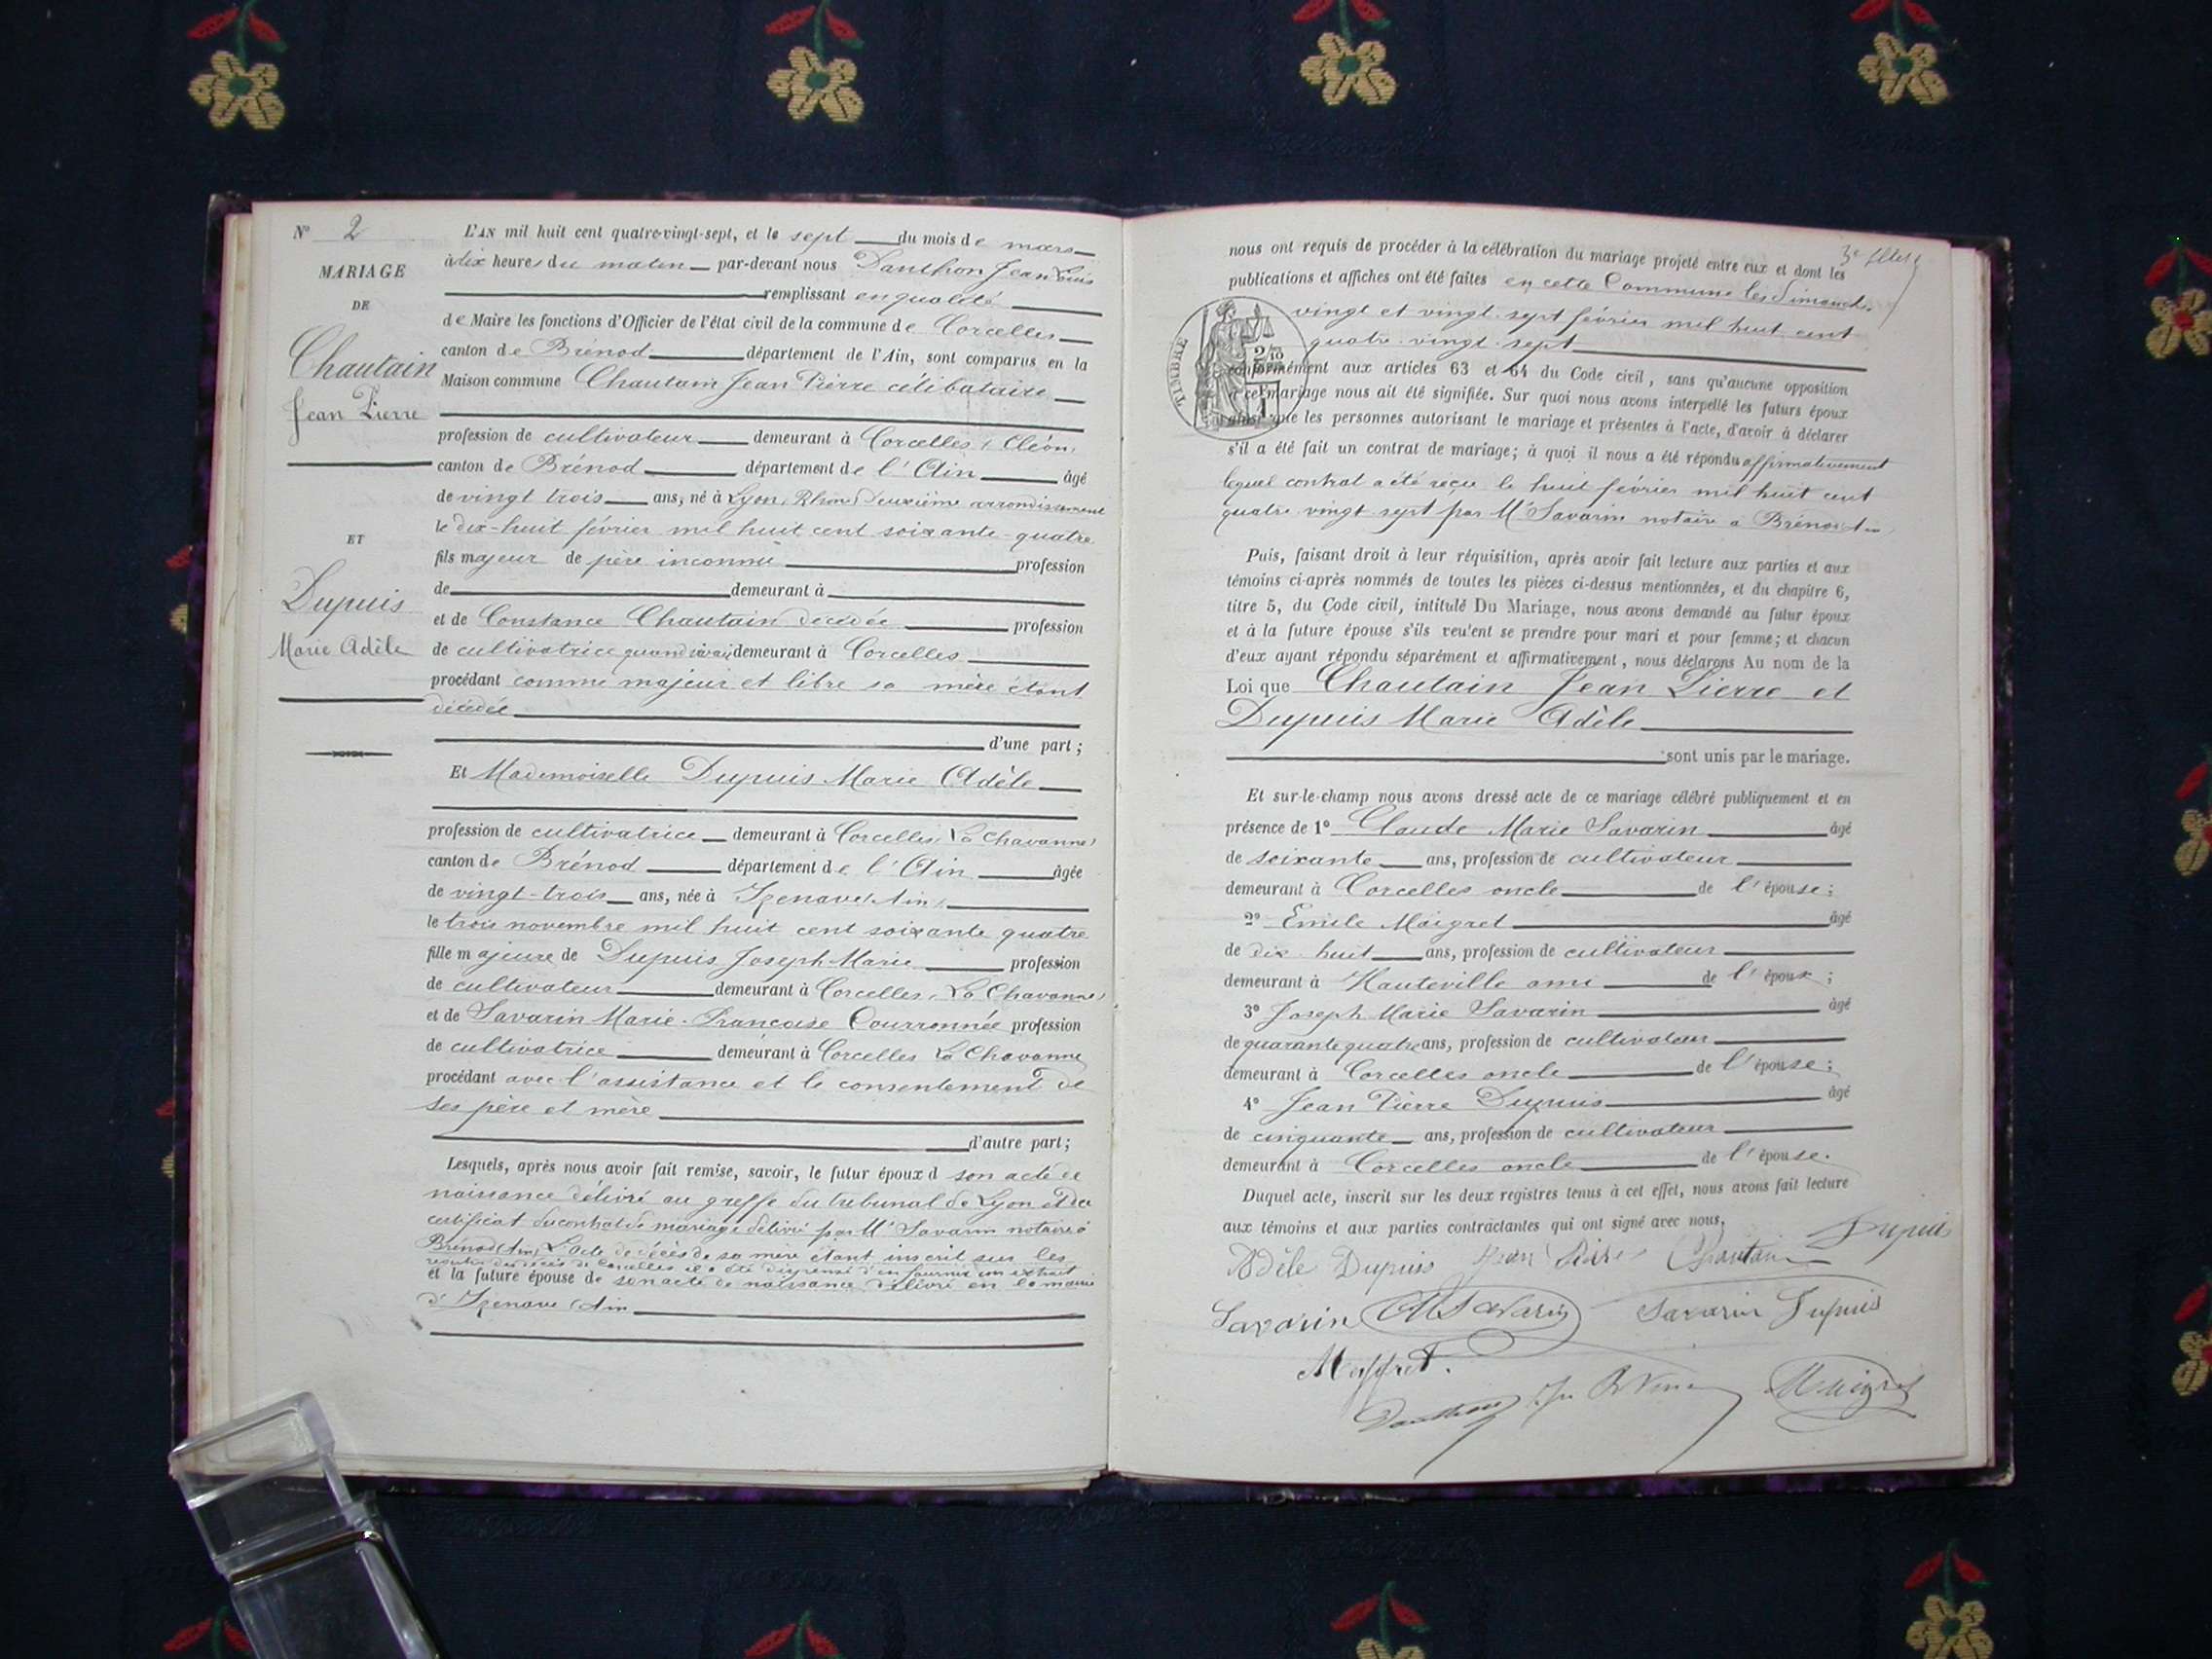 N° 2
MARIAGE
DE
Chautain
Jean Pierre
ET
Dupuis
Marie Adèle
L'AN mil huit cent quatre-vingt-sept, et le sept du mois de mars
à dix heures du matin par-devant nous Danthon Jean Louis
remplissant en qualité
de Maire les fonctions d'Officier de l'état civil de la commune de Corcelles
canton de Brénod département de l'Ain, sont comparus en la
Maison commune Chautain Jean Pierre célibataire
profession de cultivateur demeurant à Corcelles (Cléon)
canton de Brénod département de l'Ain âgé
de vingt trois ans, né à Lyon (Rhône) Deuxième arrondissement
le dix-huit février mil huit cent soixante-quatre
fils majeur de père inconnu profession
de demeurant à
et de Constance Chautain décédée profession
de cultivatrice quand vivait demeurant à Corcelles
procédant comme majeur et libre sa mère étant
décédée
d'une part;
Et Mademoiselle Dupuis Marie Adèle
profession de cultivatrice demeurant à Corcelles (La Chavanne)
canton de Brénod département de l'Ain âgée
de vingt-trois ans, née à Izenave (Ain)
le trois novembre mil huit cent soixante quatre
fille majeure de Dupuis Joseph Marie profession
de cultivateur demeurant à Corcelles (La Chavanne)
et de Savarin Marie-Francoise Courronnée profession
de cultivatrice demeurant à Corcelles La Chavanne
procédant avec l'assistance et le consentement de
ses père et mère
d'autre part;
Lesquels, après nous avoir fait remise, savoir, le futur époux d son acte de
naissance délivré au greffe du tribunal de Lyon et du
certificat du contrat de mariage délivré par Me Savarin notaire à
Brénod (Ain) L'acte de décès de sa mère étant inscrit sur les
registres des décès de Corcelles il a été dispensé d'en fournir un extrait
et la future épouse de son acte de naissance délivré en la mairie
d'Izenave (Ain
nous ont requis de procéder à la célébration du mariage projeté entre eux et dont les
publications et affiches ont été faites en cette Commune les dimanches
vingt et vingt-sept février mil huit cent
quatre-vingt-sept
TIMBRE
2/10
conformément aux articles 63 et 64 du Code civil, sans qu'aucune opposition
à ce mariage nous ait été signifiée. Sur quoi nous avons interpellé les futurs époux
ainsi que les personnes autorisant le mariage et présentes à l'acte, d'avoir à déclarer
s'il a été fait un contrat de mariage; à quoi il nous a été répondu affirmativement
lequel contrat a été reçu le huit février mil huit cent
quatre-vingt-sept par Me Savarin notaire à Brénod Ain
Puis, faisant droit à leur réquisition, après avoir fait lecture aux parties et aux
témoins ci-après nommés de toutes les pièces ci-dessus mentionnées, et du chapitre 6,
titre 5, du Code civil, intitulé Du Mariage, nous avons demandé au futur époux
et à la future épouse s'ils veulent se prendre pour mari et pour femme; et chacun
d'eux ayant répondu séparément et affirmativement, nous déclarons Au nom de la
Loi que Chautain Jean Pierre et
Dupuis Marie Adèle
sont unis par le mariage.
Et sur-le-champ nous avons dressé acte de ce mariage célébré publiquement et en
présence de 1° Claude Marie Savarin âgé
de soixante ans, profession de cultivateur
demeurant à Corcelles oncle de l'épouse;
2° Emile Maigret âgé
de dix-huit ans, profession de cultivateur
demeurant à Hauteville ami de l'époux;
3° Joseph Marie Savarin âgé
de quarante quatre ans, profession de cultivateur
demeurant à Corcelles oncle de l'épouse;
4° Jean Pierre Dupuis âgé
de cinquante ans, profession de cultivateur
demeurant à Corcelles oncle de l'épouse.
Duquel acte, inscrit sur les deux registres tenus à cet effet, nous avons fait lecture
aux témoins et aux parties contractantes qui ont signé avec nous.
Adèle Dupuis Jean Pierre Chautain Dupuis
Savarin Savarin Savarin Dupuis
Danthon Maigret